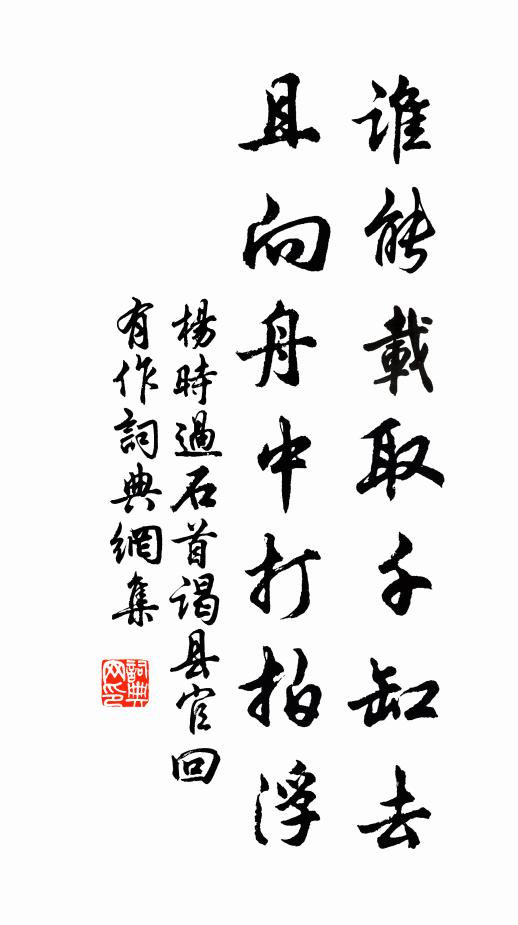 谁能載取千缸去
且向舟中打拍浮
楊時過石首謁县官回
有作詞典網集
詞典
网印